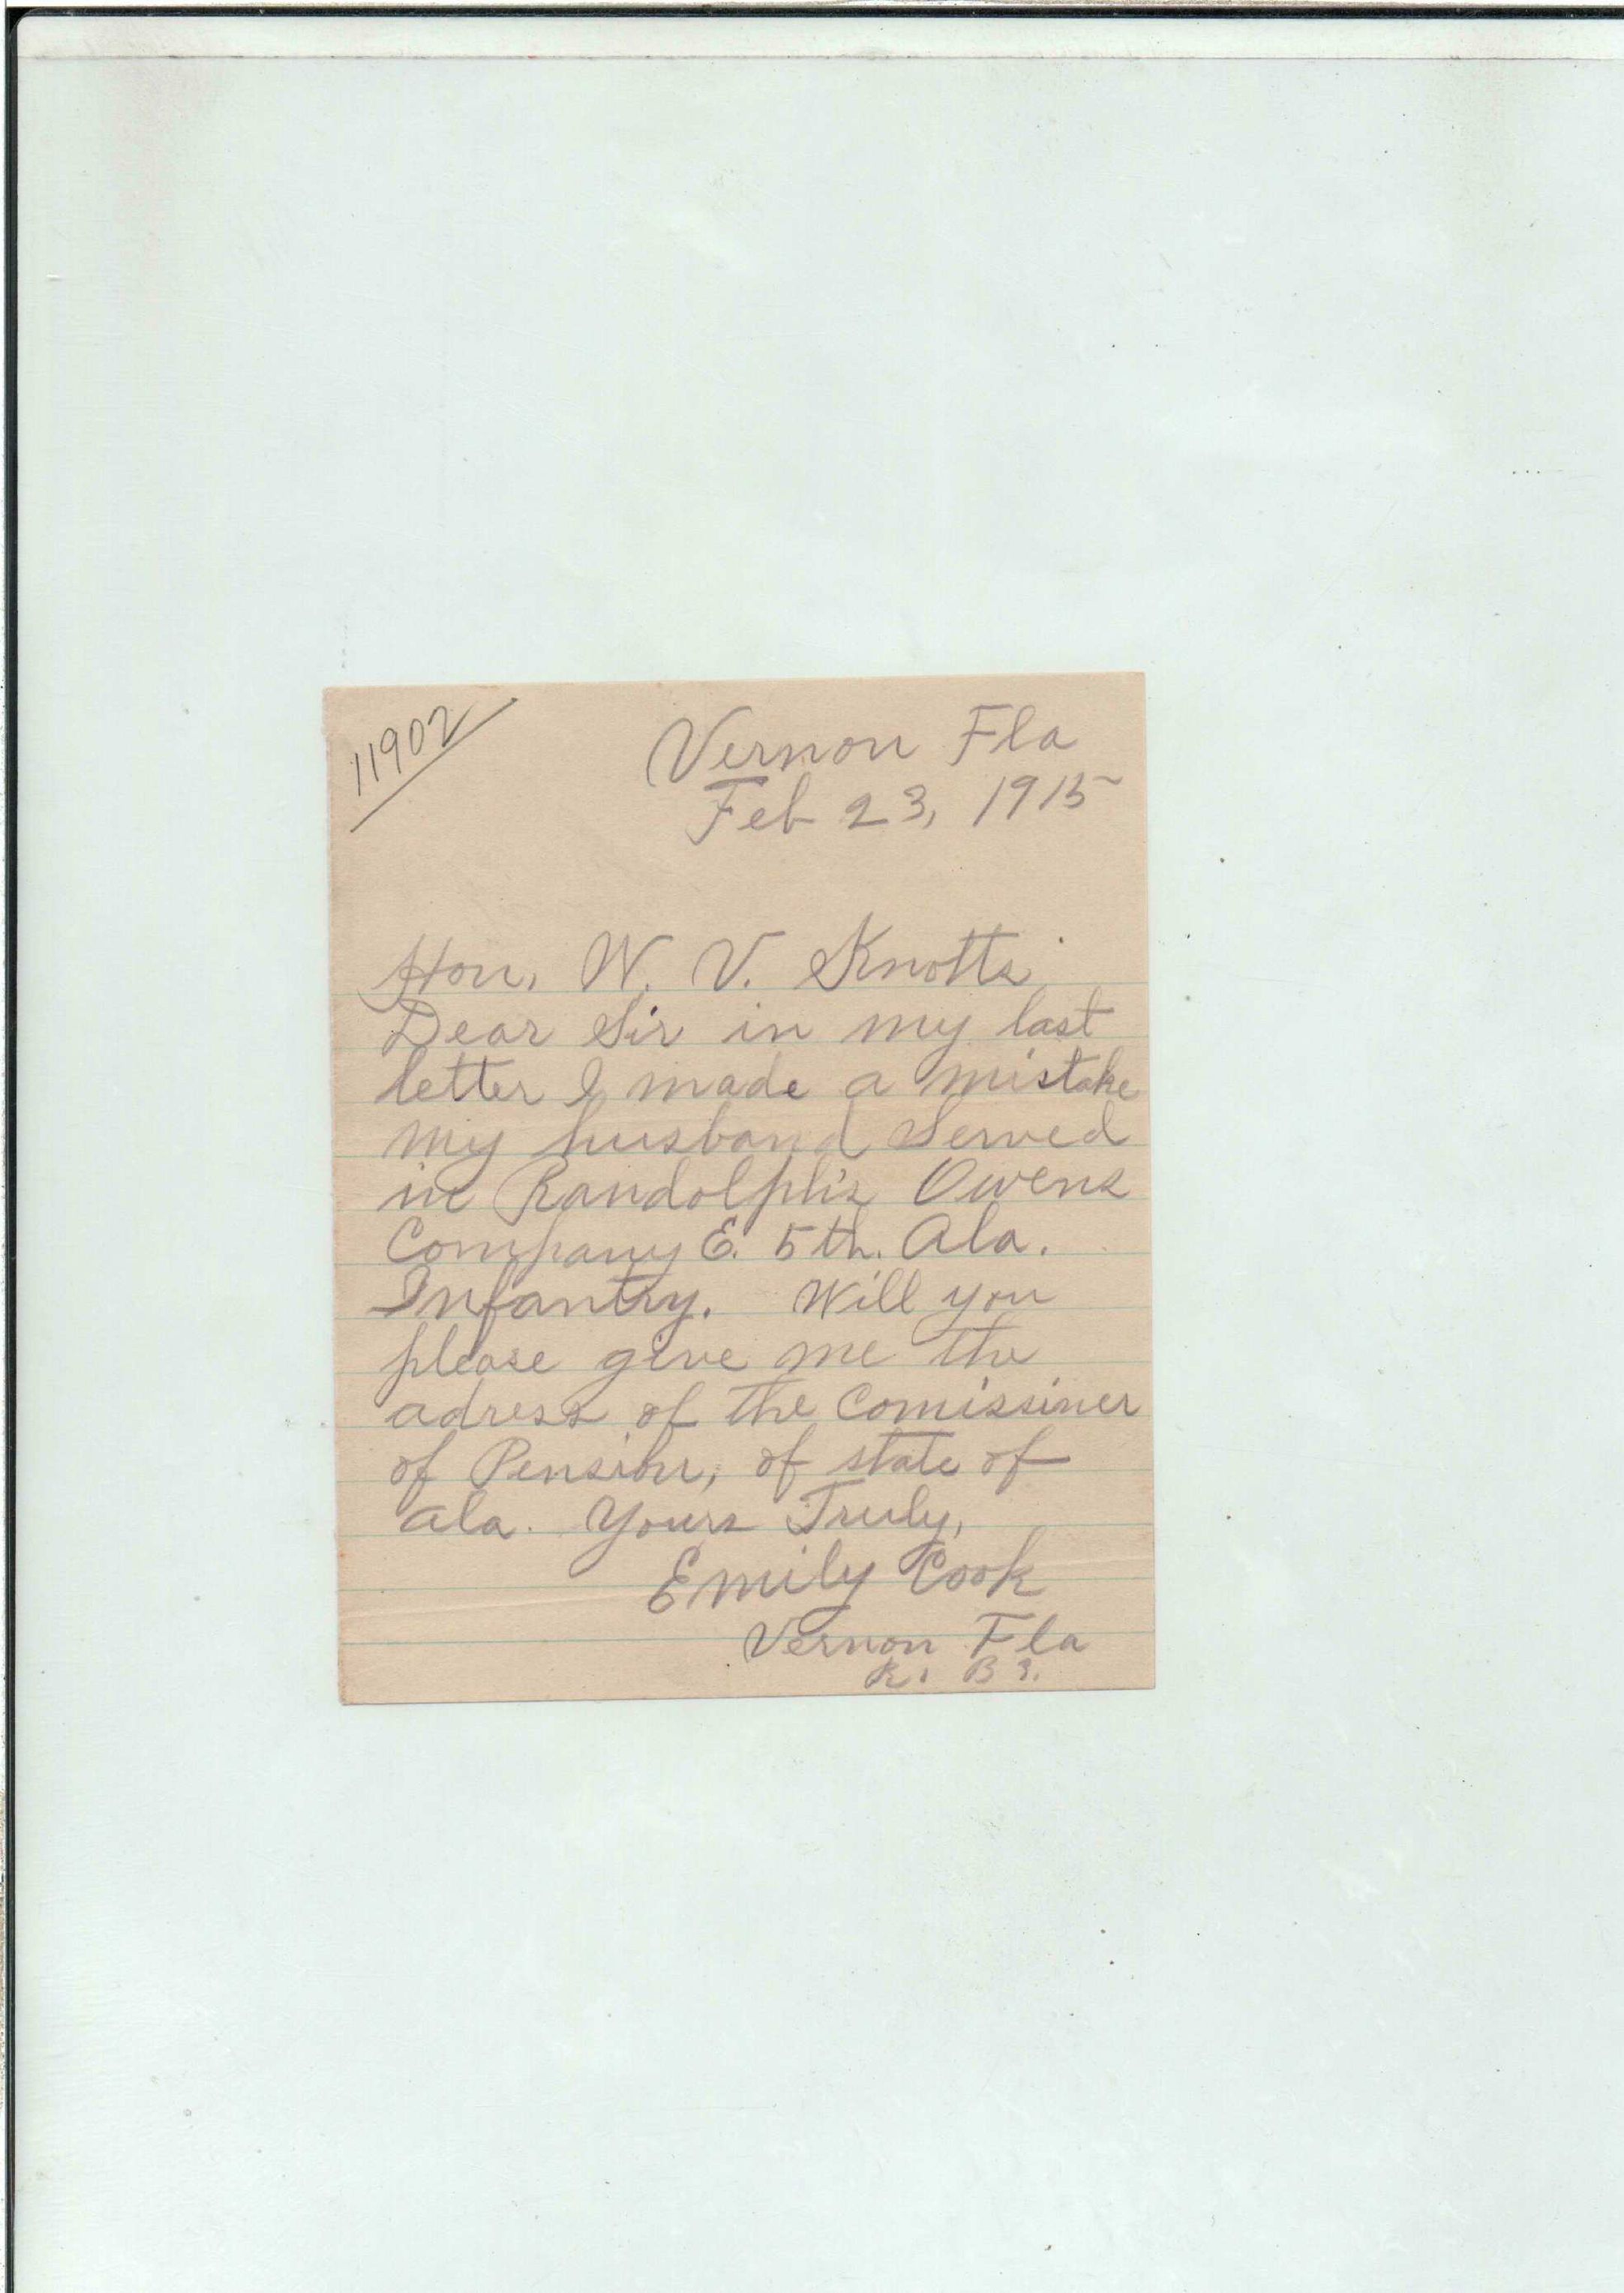 11902
Vernon Fla
Feb 23, 1915
Hon. W. V. Knotts
Dear Sir in my last
letter I made a mistake
my husband Served
in Randolph's Owens
Company E. 5th. Ala.
Infantry. Will you
please give me the
adress of the Comissiner
of Pension, of state of
Ala. Yours Truly,
Emily Cook
Vernon Fla
R. B 3.